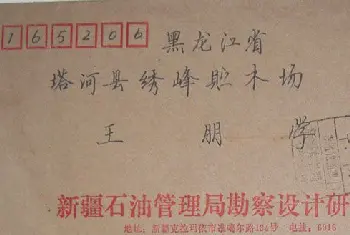 165266
黑龙江省
塔河县绣峰贮木场
王朋学
新疆石油管理局勘察设计研
地址：新疆克拉玛依市准噶尔路 电话：6016